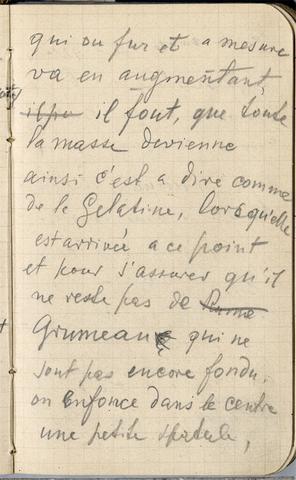 qui au fur et a mesure
va en augmentant,
il faut, que toute
la masse devienne
ainsi c'est a dire comme
de le Gelatine, lorsqu'elle
est arrivée a ce point
et pour s'assurer qu'il
ne reste pas de
Grumeaux qui ne
sont pas encore fondu,
on enfonce dans le centre
une petite spatule,